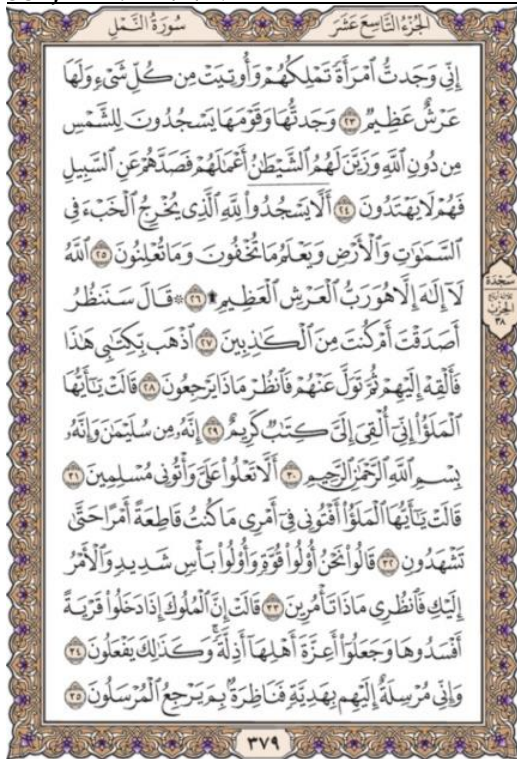 سُورَةُ النَّمْلِ
الجُزْءُ التَّاسِعَ عَشَرَ
إِنِّي وَجَدتُّ ٱمْرَأَةً تَمْلِكُهُمْ وَأُوتِيَتْ مِن كُلِّ شَيْءٍ وَلَهَا
عَرْشٌ عَظِيمٌ ٢٣ وَجَدتُّهَا وَقَوْمَهَا يَسْجُدُونَ لِلشَّمْسِ
مِن دُونِ ٱللَّهِ وَزَيَّنَ لَهُمُ ٱلشَّيْطَٰنُ أَعْمَٰلَهُمْ فَصَدَّهُمْ عَنِ ٱلسَّبِيلِ
فَهُمْ لَا يَهْتَدُونَ ٢٤ أَلَّا يَسْجُدُوا۟ لِلَّهِ ٱلَّذِي يُخْرِجُ ٱلْخَبْءَ فِي
ٱلسَّمَٰوَٰتِ وَٱلْأَرْضِ وَيَعْلَمُ مَا تُخْفُونَ وَمَا تُعْلِنُونَ ٢٥ ٱللَّهُ
لَآ إِلَٰهَ إِلَّا هُوَ رَبُّ ٱلْعَرْشِ ٱلْعَظِيمِ ۩ ٢٦ ۞ قَالَ سَنَنظُرُ
أَصَدَقْتَ أَمْ كُنتَ مِنَ ٱلْكَٰذِبِينَ ٢٧ ٱذْهَب بِّكِتَٰبِي هَٰذَا
فَأَلْقِهْ إِلَيْهِمْ ثُمَّ تَوَلَّ عَنْهُمْ فَٱنظُرْ مَاذَا يَرْجِعُونَ ٢٨ قَالَتْ يَٰٓأَيُّهَا
ٱلْمَلَؤُا۟ إِنِّيٓ أُلْقِيَ إِلَيَّ كِتَٰبٌ كَرِيمٌ ٢٩ إِنَّهُۥ مِن سُلَيْمَٰنَ وَإِنَّهُۥ
بِسْمِ ٱللَّهِ ٱلرَّحْمَٰنِ ٱلرَّحِيمِ ٣٠ أَلَّا تَعْلُوا۟ عَلَيَّ وَأْتُونِي مُسْلِمِينَ ٣١
قَالَتْ يَٰٓأَيُّهَا ٱلْمَلَؤُا۟ أَفْتُونِي فِيٓ أَمْرِي مَا كُنتُ قَاطِعَةً أَمْرًا حَتَّىٰ
تَشْهَدُونِ ٣٢ قَالُوا۟ نَحْنُ أُو۟لُوا۟ قُوَّةٍ وَأُو۟لُوا۟ بَأْسٍ شَدِيدٍ وَٱلْأَمْرُ
إِلَيْكِ فَٱنظُرِي مَاذَا تَأْمُرِينَ ٣٣ قَالَتْ إِنَّ ٱلْمُلُوكَ إِذَا دَخَلُوا۟ قَرْيَةً
أَفْسَدُوهَا وَجَعَلُوٓا۟ أَعِزَّةَ أَهْلِهَآ أَذِلَّةً ۖ وَكَذَٰلِكَ يَفْعَلُونَ ٣٤
وَإِنِّي مُرْسِلَةٌ إِلَيْهِم بِهَدِيَّةٍ فَنَاظِرَةٌۢ بِمَ يَرْجِعُ ٱلْمُرْسَلُونَ ٣٥
سَجْدَة
الحِزْبُ
٣٨
٣٧٩